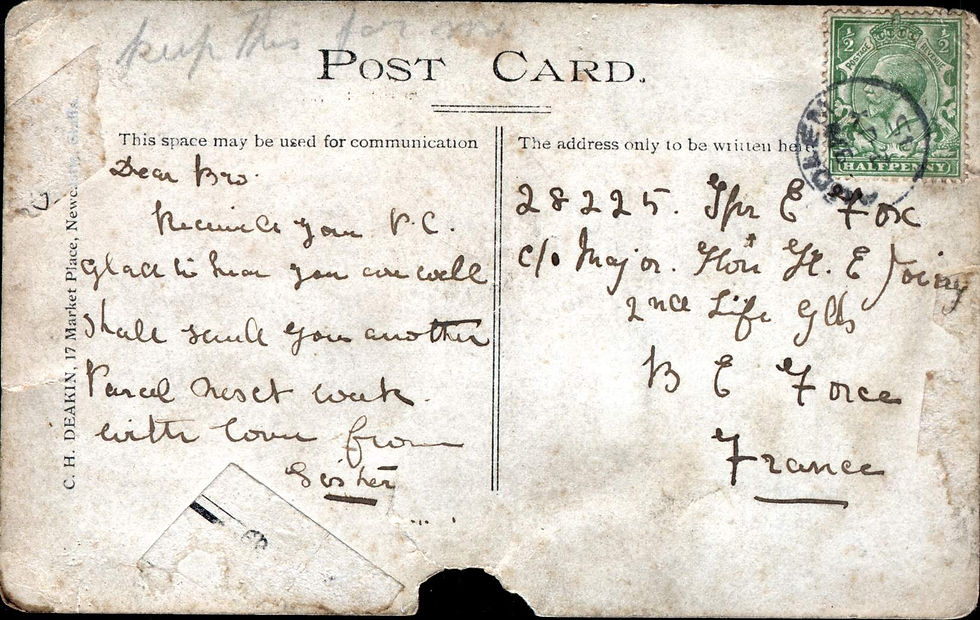 keep this for me
POST CARD.
This space may be used for communication
The address only to be written here
C. H. DEAKIN, 17 Market Place, Newc
½ ½
POSTAGE REVENUE
HALFPENNY
Dear Bro.
Received your P.C.
Glad to hear you are well
shall send you another
Parcel next week
with love from
Sister
28225. Tpr E Fox
c/o Major. Hon H. E
2nd Life Gds
B E Force
France